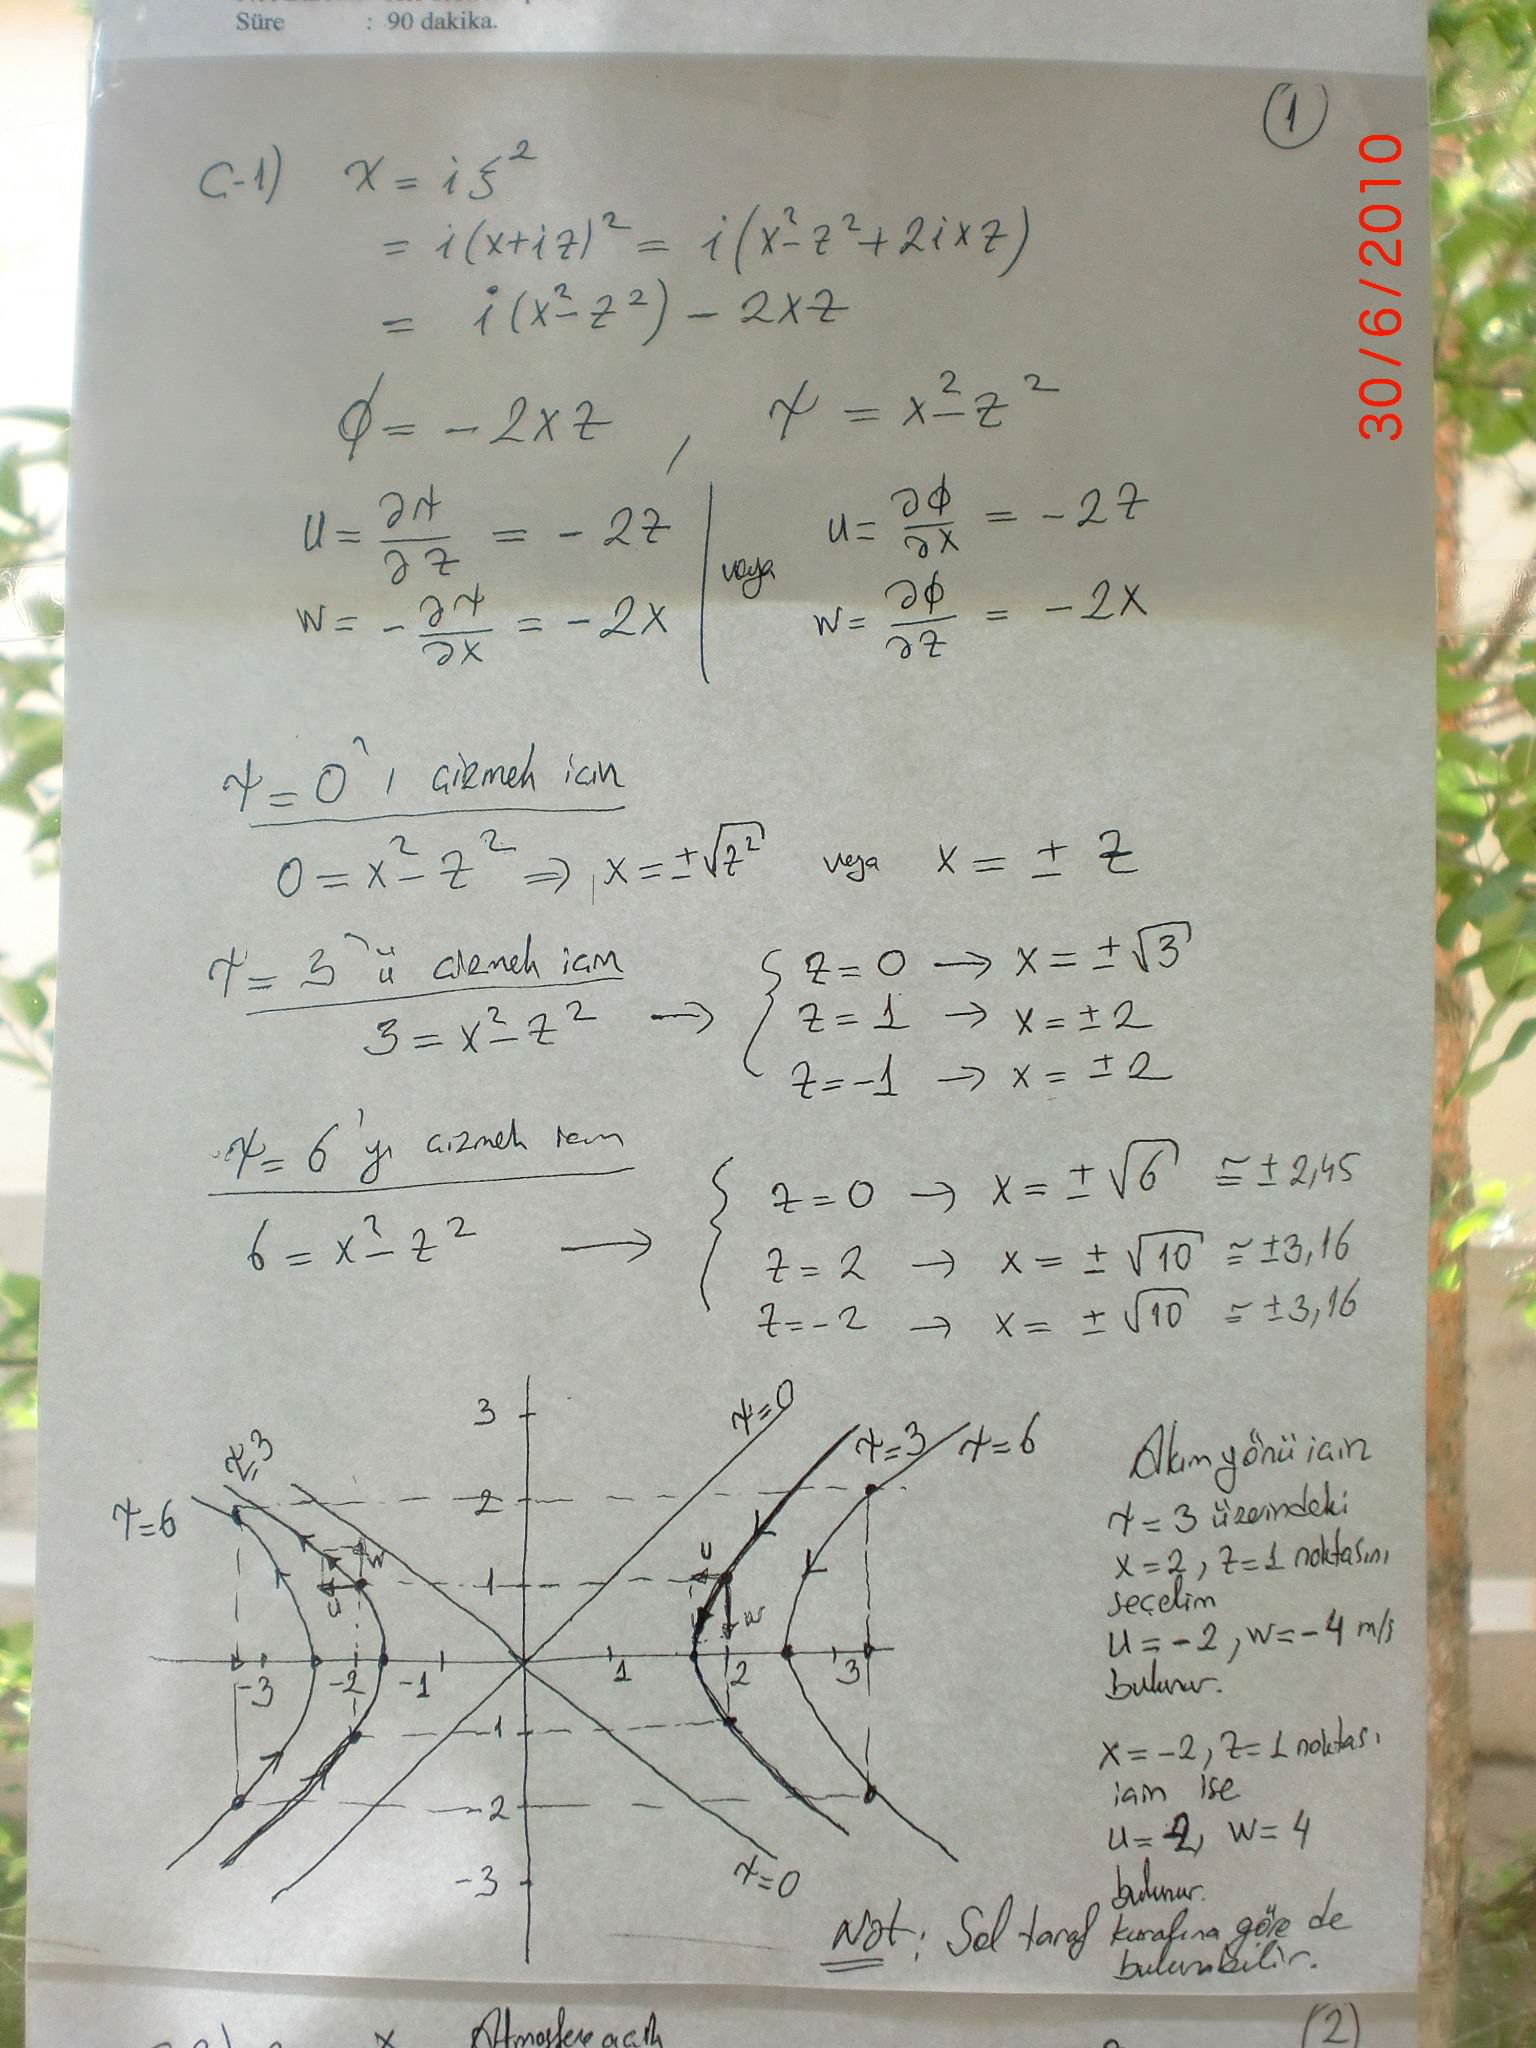 Süre : 90 dakika.
1
30/6/2010
C-1) χ = i ξ²
= i(x+iz)² = i(x²-z²+2ixz)
= i(x²-z²) - 2xz
ϕ = -2xz , ψ = x²-z²
u = ∂ψ/∂z = -2z veya u = ∂ϕ/∂x = -2z
w = -∂ψ/∂x = -2x w = ∂ϕ/∂z = -2x
ψ = 0'ı çizmek için
0 = x²-z² ⇒ x = ±√z² veya x = ± z
ψ = 3'ü çizmek için
3 = x²-z² → { z = 0 → x = ±√3
z = 1 → x = ±2
z = -1 → x = ±2
ψ = 6'yı çizmek için
6 = x²-z² → { z = 0 → x = ±√6 ≅ ±2,45
z = 2 → x = ±√10 ≅ ±3,16
z = -2 → x = ±√10 ≅ ±3,16
3 ψ=0
ψ=3 ψ=3 ψ=6
ψ=6 2
w u
u 1 w
-3 -2 -1 1 2 3
-1
-2
-3 ψ=0
Akım yönü için
ψ = 3 üzerindeki
x = 2, z = 1 noktasını
seçelim
u = -2, w = -4 m/s
bulunur.
x = -2, z = 1 noktası
için ise
w = 4
bulunur.
Not: Sol taraf kuralına göre de
bulunabilir.
Atmosfere açık
(2)